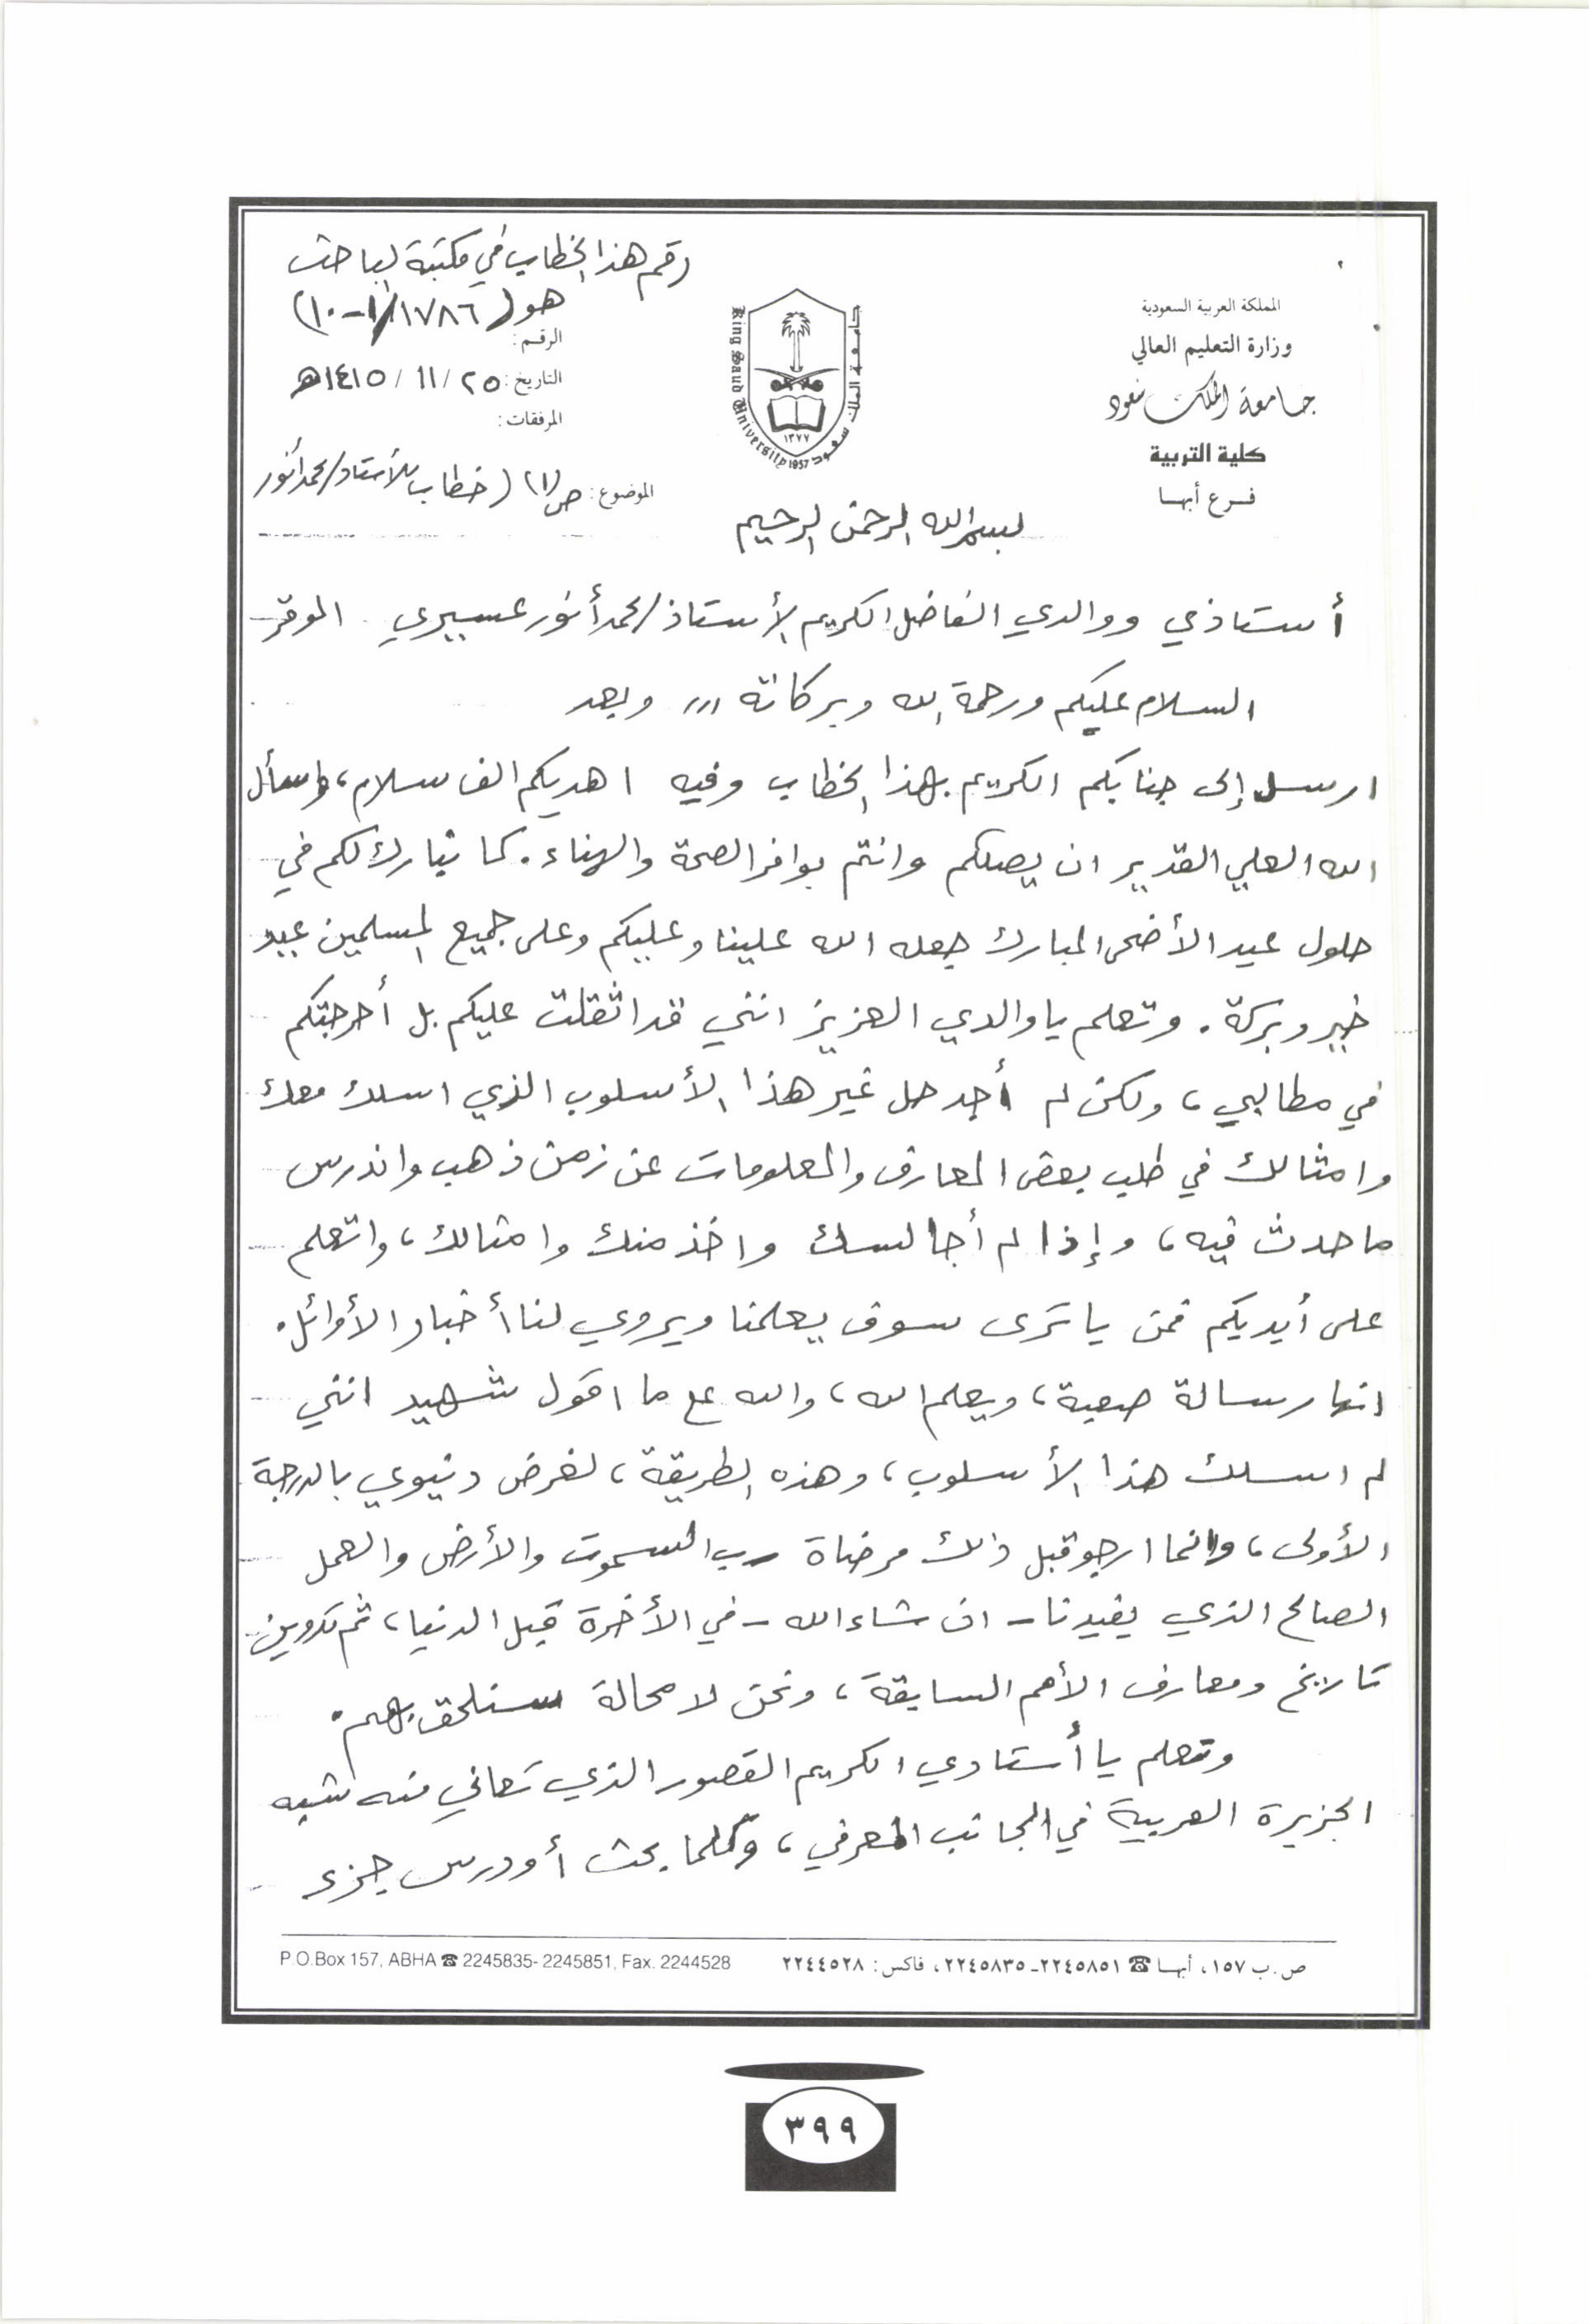 رقم هذا الخطاب في مكتبة الباحث
هو (١٧٨٦/١-١٠)
المملكة العربية السعودية
وزارة التعليم العالي
جامعة الملك سعود
كلية التربية
فرع أبها
جامعة الملك سعود
King Saud University
١٣٧٧
1957
الرقم:
التاريخ: ٢٥ / ١١ / ١٤١٥هـ
المرفقات:
الموضوع: ص(١) (خطاب للأستاذ/محمد أنور
بسم الله الرحمن الرحيم
أستاذي ووالدي الفاضل الكريم الأستاذ/محمد أنور عسيري الموقر
السلام عليكم ورحمة الله وبركاته ,,, وبعد
ارسل إلى جنابكم الكريم بهذا الخطاب وفيه اهديكم الف سلام، واسأل
الله العلي القدير ان يصلكم وانتم بوافر الصحة والهناء. كما نبارك لكم في
حلول عيد الأضحى المبارك جعله الله علينا وعليكم وعلى جميع المسلمين عيد
خير وبركة. وتعلم يا والدي العزيز انني قد اثقلت عليكم بل أحرجتكم
في مطالبي، ولكن لم أجد حل غير هذا الأسلوب الذي اسلك معك
وامثالك في طلب بعض المعارف والمعلومات عن زمن ذهب واندرس
ما حدث فيه، وإذا لم أجالسك واخذ منك وامثالك، واتعلم
على أيديكم فمن يا ترى سوف يعلمنا ويروي لنا أخبار الأوائل.
انها رسالة صعبة، ويعلم الله، والله على ما اقول شهيد انني
لم اسلك هذا الأسلوب، وهذه الطريقة، لغرض دنيوي بالدرجة
الأولى، وانما ارجو قبل ذلك مرضاة رب السموت والأرض والعمل
الصالح الذي يفيدنا - ان شاء الله - في الأخرة قبل الدنيا، ثم تدوين
تاريخ ومعارف الأمم السابقة، ونحن لا محالة سنلحق بهم.
وتعلم يا أستادي الكريم القصور الذي تعاني منه شبه
الجزيرة العربية في الجانب المعرفي، وكلما بحث أو درس جزء
ص.ب ١٥٧، أبها ☎ ٢٢٤٥٨٥١-٢٢٤٥٨٣٥، فاكس: ٢٢٤٤٥٢٨
P.O.Box 157, ABHA ☎ 2245835-2245851, Fax. 2244528
٣٩٩